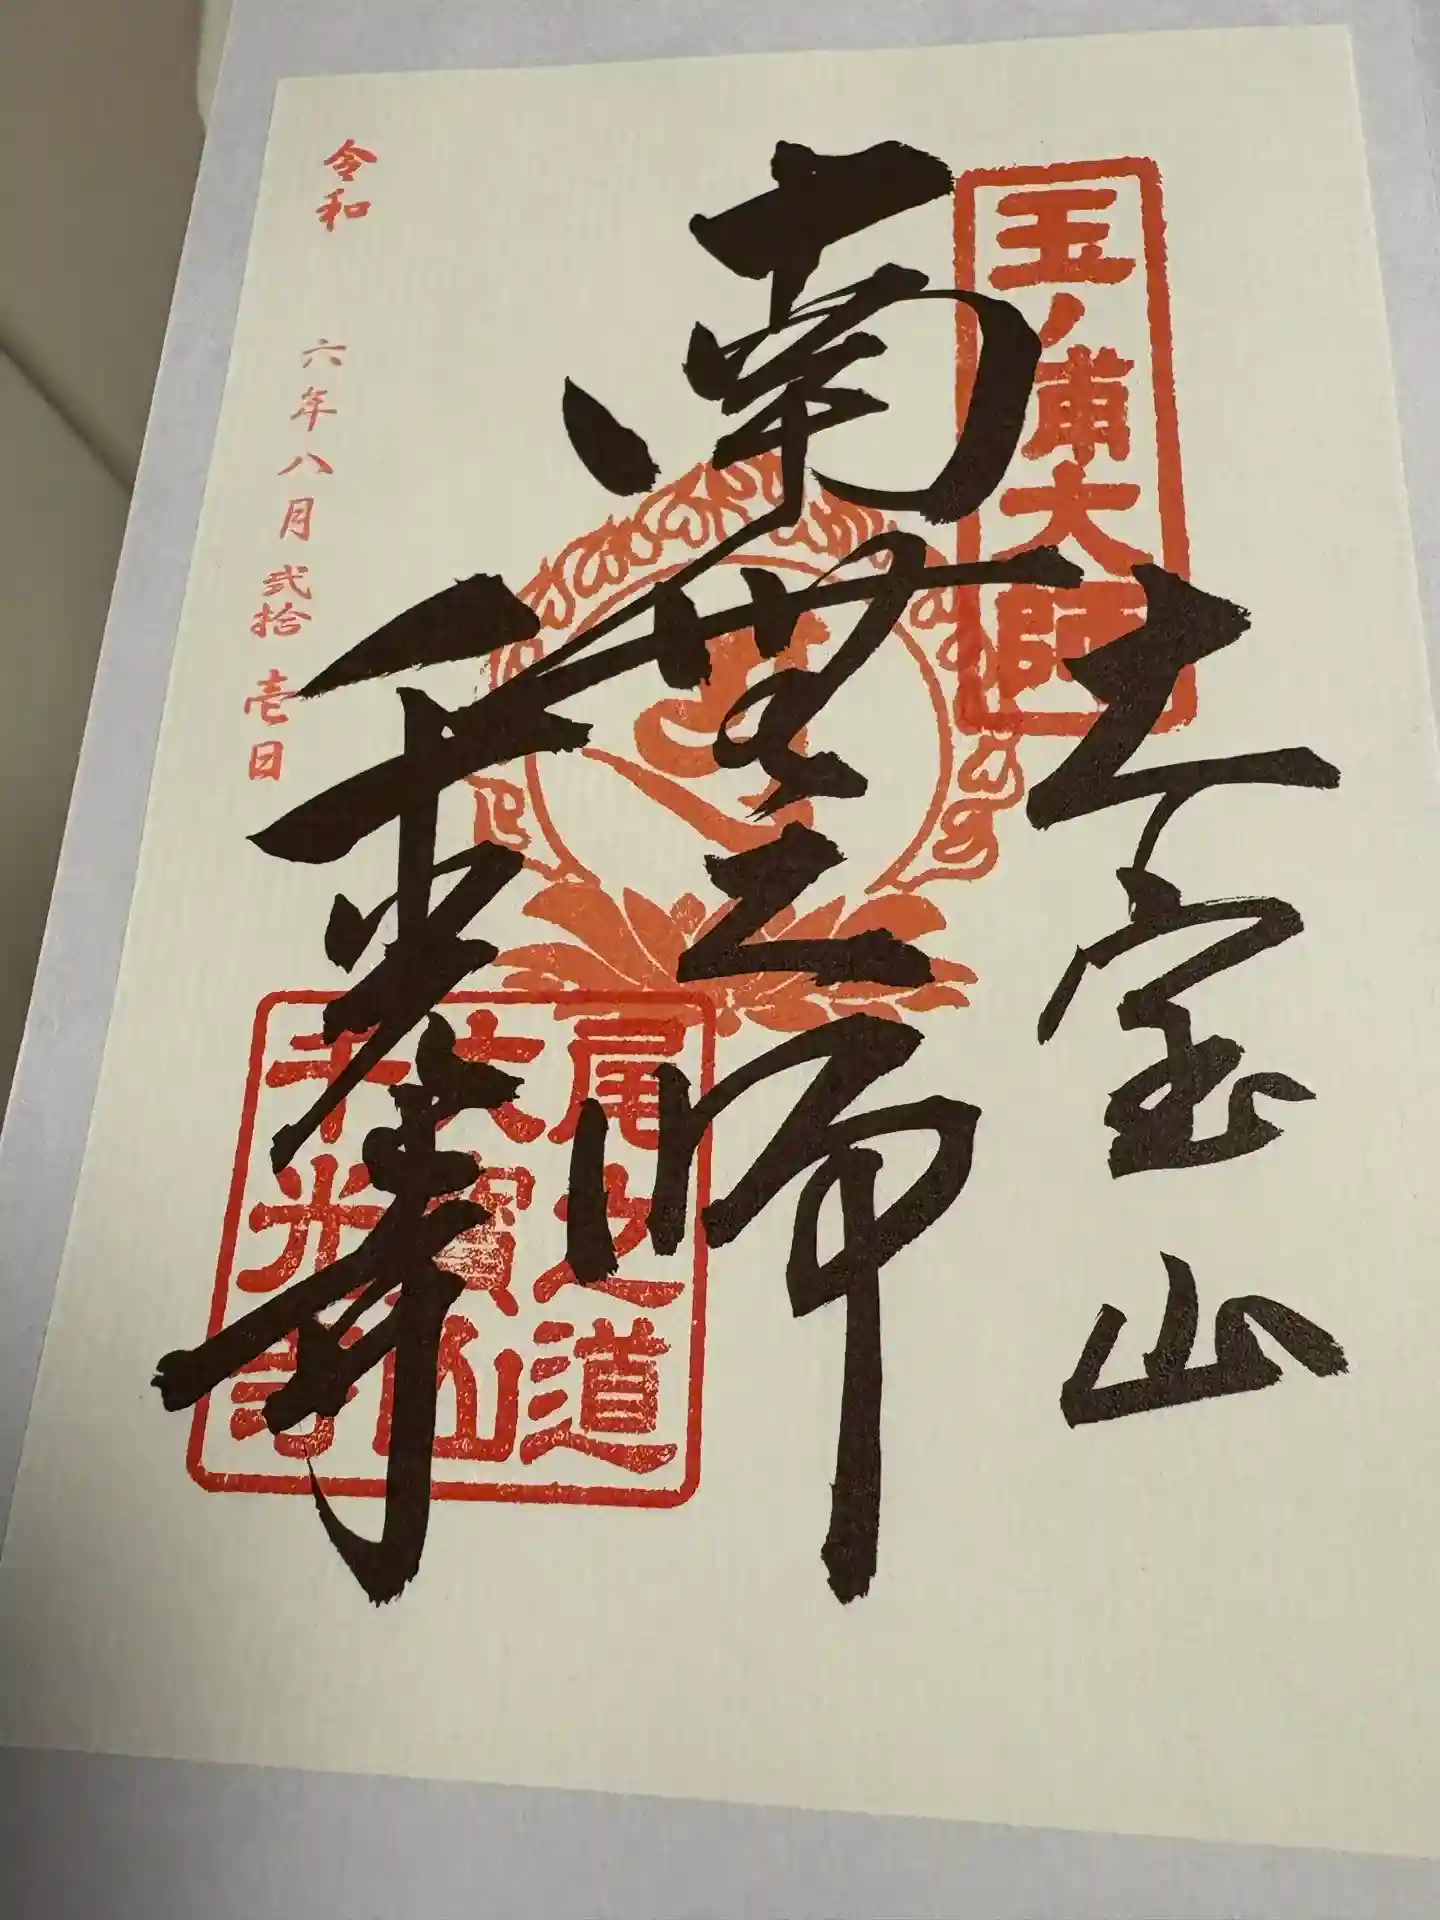 玉ノ浦大師
大宝山
南無大師
千光寺
尾之道
大寳山
千光寺
令和 六年八月弐拾壱日